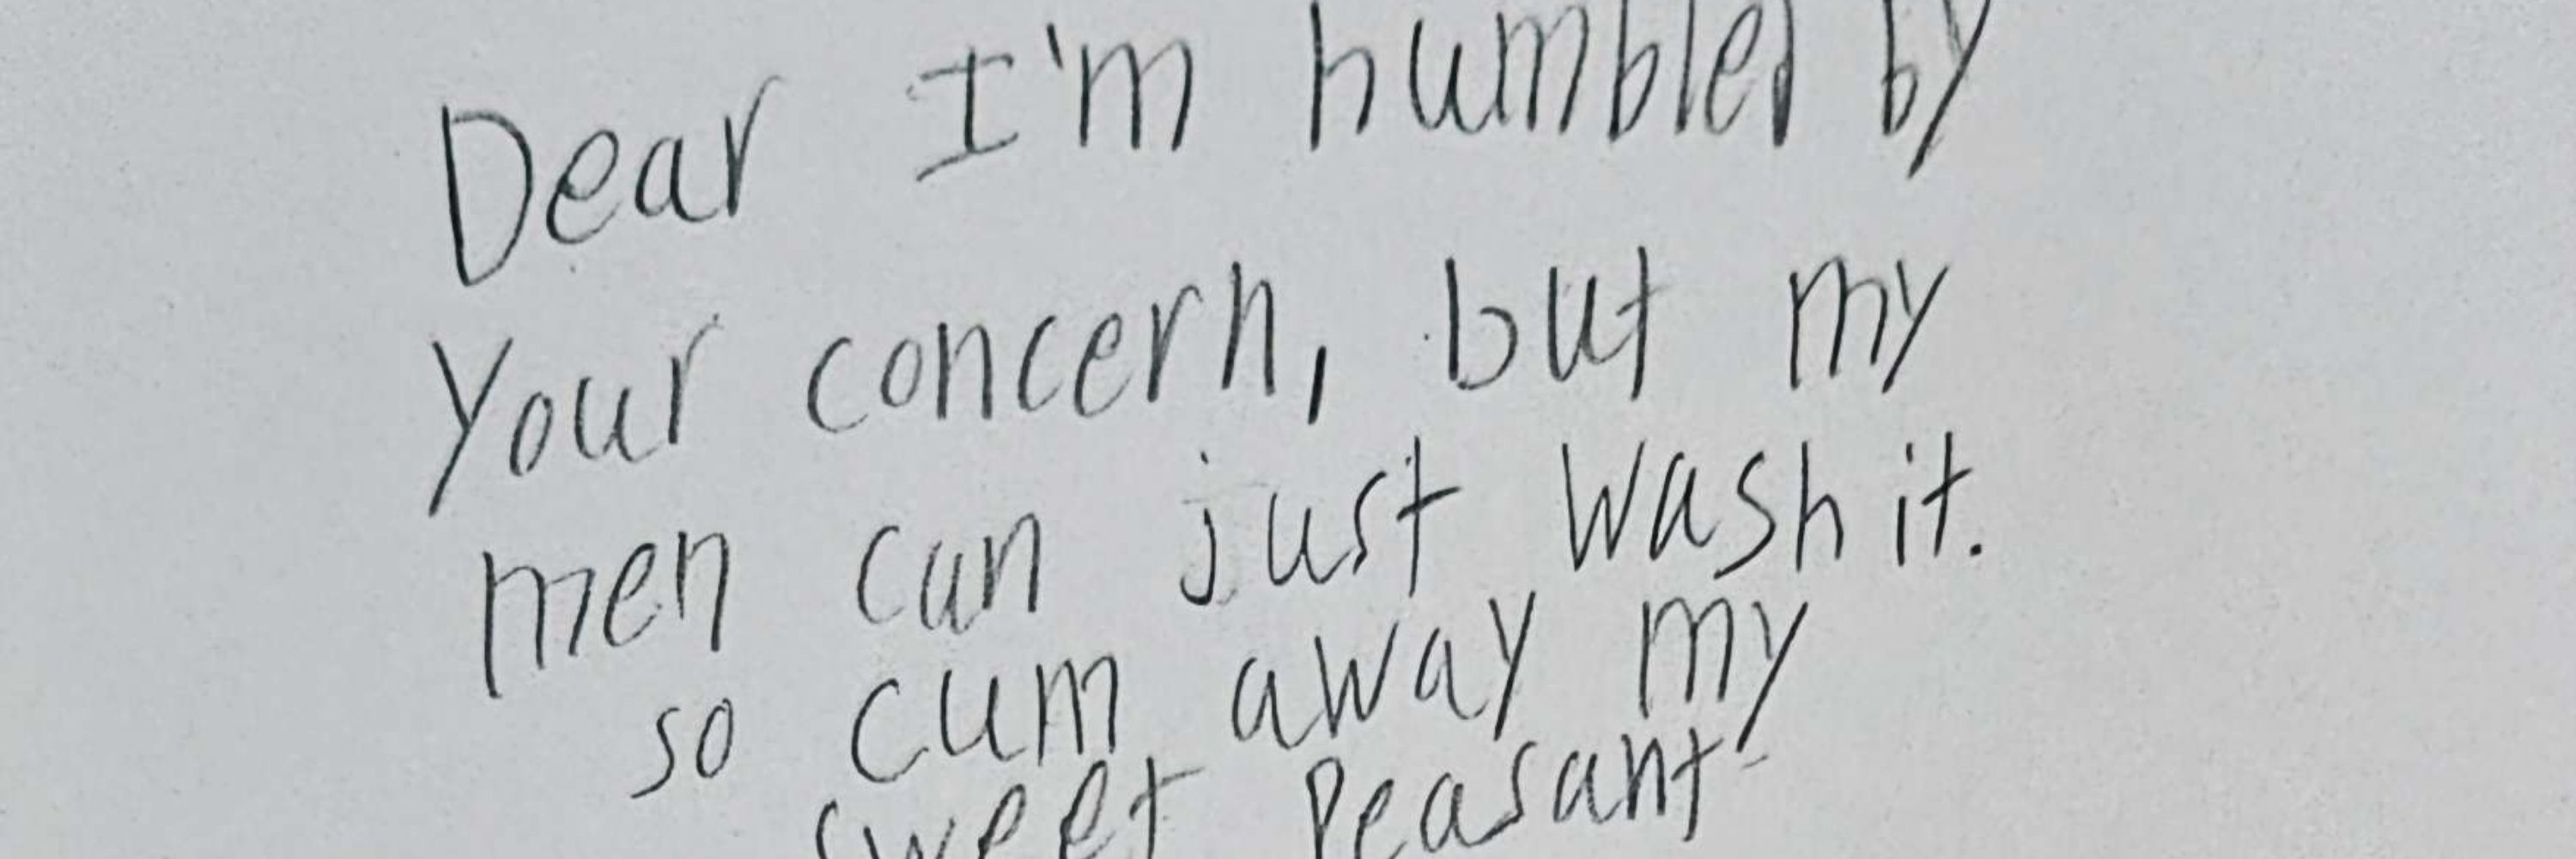 Dear I'm humbled by
Your concern, but my
men can just wash it.
so cum away my
sweet Peasant